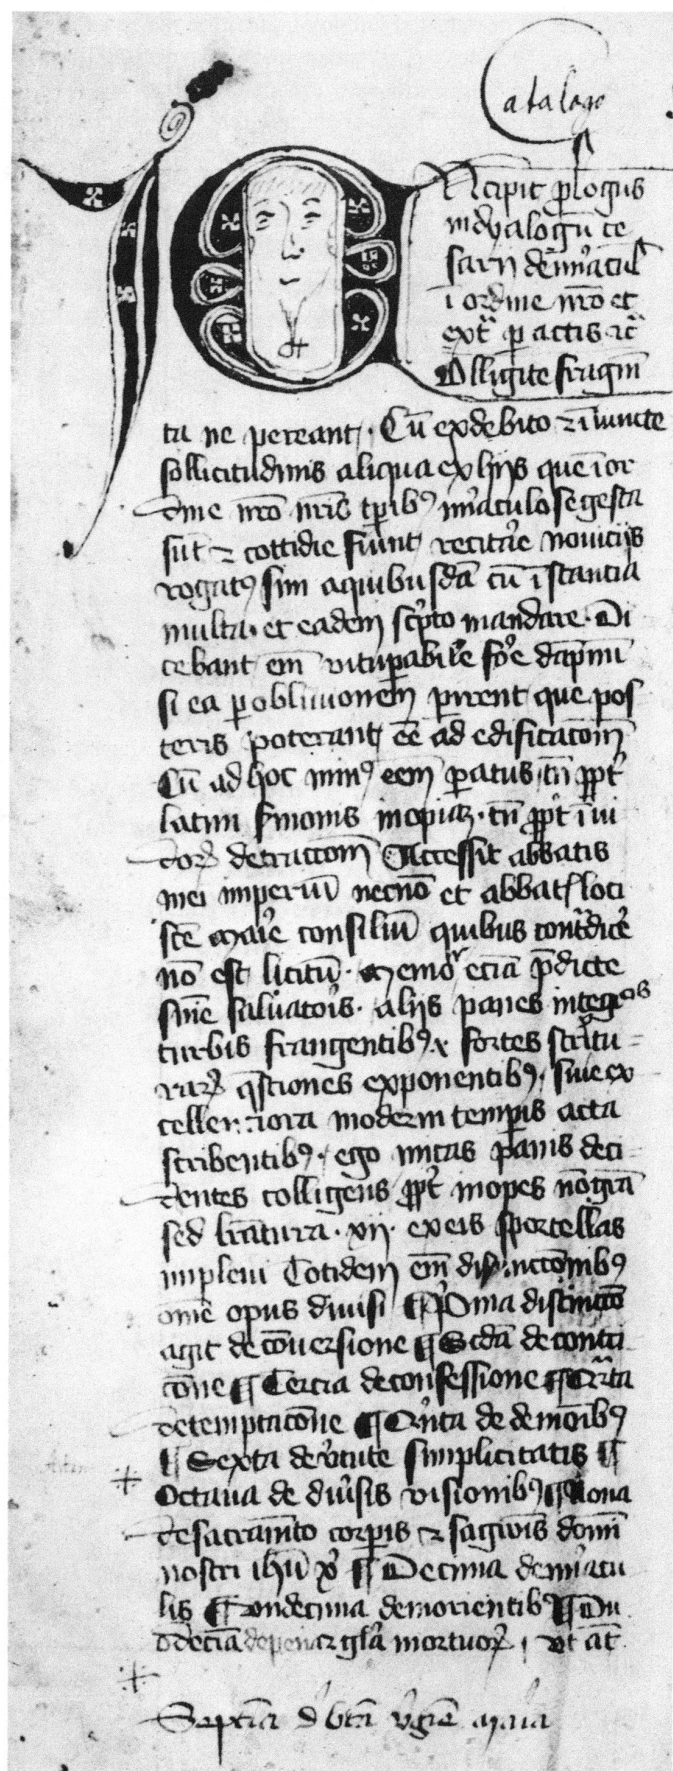 Catalogo
Incipit plogus
in dyalogū ce
sarii de mi̅aculˀ
i ordine nr̅o et
ext̅ p actis ic̅
Olligite fragm̅
ta ne pereant. Cu̅ ex debito i̅iuncte
sollicitudinis aliqua ex hijs que i or
dine nr̅o nr̅is tpibꝰ mi̅aculose gesta
su̅t ⁊ cottidie fiunt recita̅e novicijs
rogatꝰ sim a quibusda̅ cu̅ i̅stancia
multa. et eadem sc̅pto mandare. Di
cebant em̅ vitupabile fo̅e dapnu̅
si ea p oblivionem pirent que pos
teris poterant ee̅ ad edificac̅om̅
Cu̅ ad hoc minꝰ eem̅ patus tn̅ ppt̅
latini s̅monis inopia. tn̅ ppt̅ i̅vi
doꝝ detractom̅ Accessit abbatis
mei imperiu̅ necno̅ et abbat̅ loci
sc̅e Ma̅ie consiliu̅ quibus cont̅dic̅e
no̅ est licitu̅. Memor̅ ecia̅ p̅dicte
sn̅ie salvato̅is. aliis panes integros
turbis frangentibꝰ ⁊ fortes sc̅ptu
raꝝ q̅stiones exponentibꝰ. sive ex
cellenciora moderni tempis acta
scribentibꝰ. ego micas panis deci
dentes colligens ppt̅ inopes no̅ g̅ra̅
sed l̅ratura. xii. ex eis sportellas
implevi Totidem em̅ distinctio̅nibꝰ
ome̅ opus divisi ¶ P̅ima distinctio̅
agit de co̅versione ¶ Sc̅da̅ de cont̅i
cio̅ne ¶ Tercia de confessione ¶ Q̅rta
de temptacio̅ne ¶ Q̅inta de demo̅ibꝰ
¶ Sexta de v̅tute simplicitatis ¶
Octava de div̅sis visionibꝰ ¶ Nona
de sacram̅to corpis ⁊ sagwi̅s domi̅
nostri ihu̅ xp̅i ¶ Decima de mi̅acu
lis ¶ Undecima de morientibꝰ ¶ Du
odeci̅a de pena ⁊ gl̅a mortuoꝝ. Ut at̅
Septi̅a d̅ b̅ta̅ v̅gi̅e ma̅ia